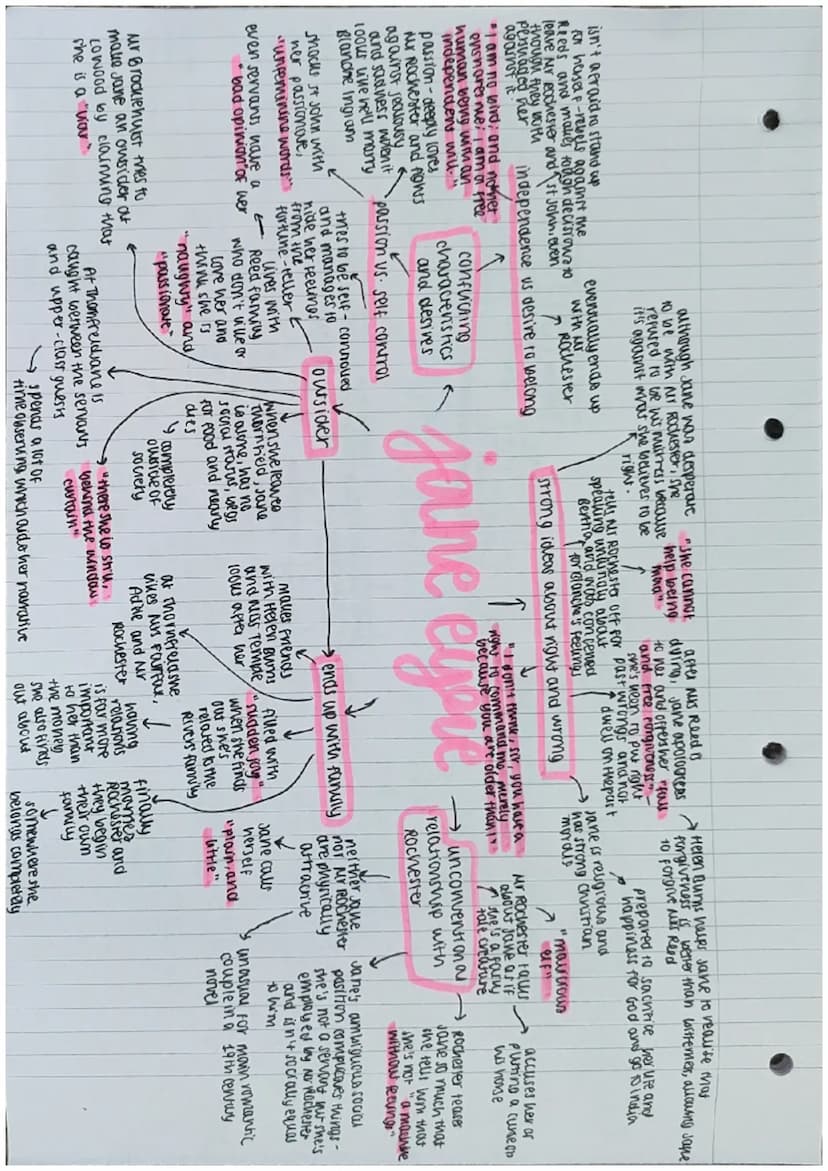 jane eyre
conflicting
characteristics
and desires
independence vs desire to belong
isn't afraid to stand up
for herself - rebels against the
Reeds and makes tough decisions to
leave Mr Rochester and St John, even
though they both
persuaded her
against it.
"I am no bird; and no net
ensnares me; I am a free
human being with an
independent will."
eventually ends up
with Mr
Rochester
passion vs. self control
passion - deeply loves
Mr Rochester and fights
against jealousy
and sadness when it
looks like he'll marry
Blanche Ingram
shocks St John with
her passionate,
"unfeminine words"
tries to be self-controlled
and manages to
hide her feelings
from the
fortune-teller
outsider
lives with
Reed family
who don't like or
love her and
think she is
"naughty" and
"passionate"
even servants have a
"bad opinion" of her
Mr Brocklehurst tries to
make Jane an outsider at
Lowood by claiming that
she is a "liar"
At Thornfield Jane is
caught between the servants
and upper-class guests
spends a lot of
time observing which aids her narrative
"there she is still,
behind the window
curtain"
when she leaves
Thornfield, Jane
is alone, has no
social status, begs
for food and nearly
dies
completely
outside of
society
ends up with family
makes friends
with Helen Burns
and Miss Temple
looks after her
at Thornfield she
likes Mrs Fairfax,
Adele and Mr
Rochester
filled with
"sudden joy"
when she finds
out she's
related to the
Rivers family
having
relations
is far more
important
to her than
the money
she also finds
out about
finally
marries
Rochester and
they begin
their own
family
somewhere she
belongs completely
strong ideas about right and wrong
although Jane was desperate
to be with Mr Rochester, she
refused to be his mistress because
it's against what she believes to be
right.
tells Mr Rochester off for
speaking unkindly about
Bertha, and is concerned
for Blanche's feelings
"she cannot
help being
mad"
after Mrs Reed is
dying, Jane apologises
to her and offers her "full
and free forgiveness" -
she's keen to put right
past wrongs and not
dwell on the past
Helen Burns helps Jane to realise that
forgiveness is better than bitterness, allowing Jane
to forgive Mrs Reed
Jane is religious and
has strong Christian
morals
prepared to sacrifice her life and
happiness for God and go to India
"I don't think, sir, you have a
right to command me, merely
because you are older than I"
unconventional
relationship with
Rochester
Mr Rochester talks
about Jane as if
she is a fairy
tale creature
"malicious
elf"
accuses her of
putting a curse on
his horse
Rochester teases
Jane so much that
she tells him that
she's not "a machine
without feelings"
Jane's ambiguous social
position complicates things -
she's not a servant but she's
employed by Mr Rochester
and isn't socially equal
to him
neither Jane
nor Mr Rochester
are physically
attractive
Jane calls
herself
"plain, and
little"
unusual for main romantic
couple in a 19th century
novel